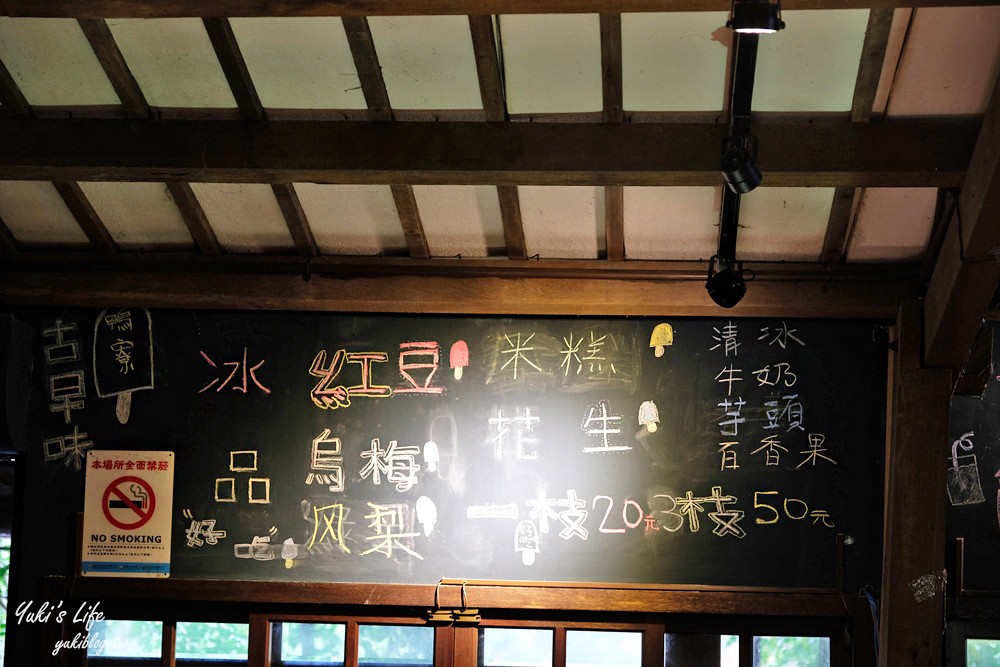 古早味
鴨寮
冰品
"好吃"
紅豆
烏梅
风梨
米糕
花生
一枝20元3枝50元
清冰
牛奶
芋頭
百香果
本場所全面禁菸
NO SMOKING
Yuki's Life